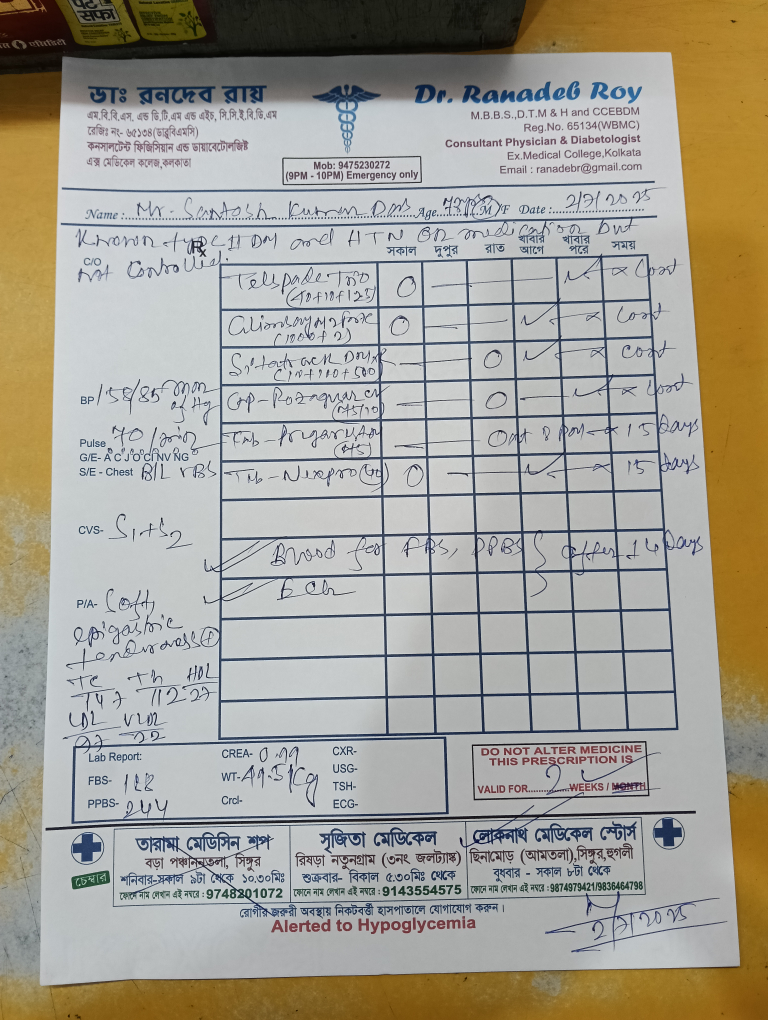 ডাঃ রনদেব রায়
এম.বি.বি.এস. এন্ড ডি.টি.এম এন্ড এইচ, সি.সি.ই.বি.ডি.এম
রেজিঃ নং- ৬৫১৩৪(ডাব্লুবিএমসি)
কনসালটেন্ট ফিজিসিয়ান এন্ড ডায়াবেটোলজিষ্ট
এক্স মেডিকেল কলেজ,কলকাতা
Mob: 9475230272
(9PM - 10PM) Emergency only
Dr. Ranadeb Roy
M.B.B.S.,D.T.M & H and CCEBDM
Reg.No. 65134(WBMC)
Consultant Physician & Diabetologist
Ex.Medical College,Kolkata
Email : ranadebr@gmail.com
Name : Mr. Santosh Kumar Das Age M/F Date : 2/7/2025
Known type II DM and HTN on medication but
not controlled.
C/O
Rx
সকাল দুপুর রাত খাবার আগে খাবার পরে সময়
(40+10+12.5) O — — ✓ × Cont
(1000+2) O — — ✓ × Cont
(10+100+500) — — O ✓ × Cont
(75/10) — — O — ✓ × Cont
× 15 Days
Tab- Nexpro(40) O — — ✓ × 15 Days
BP 138/85 mm of Hg
Pulse 70/min
G/E- A C J O C NV NG
S/E - Chest B/L VBS
CVS- S1+S2
Blood for FBS, PPBS } after 14 Days
P/A- Soft,
epigastric
tenderness (+)
TC HDL
147 112 27
LDL VLDL
22
Lab Report:
FBS-
PPBS- 244
CREA- 0.99
WT- 49.5 Kg
Crcl-
CXR-
USG-
TSH-
ECG-
DO NOT ALTER MEDICINE
THIS PRESCRIPTION IS
VALID FOR 2 WEEKS / MONTH
চেম্বার
তারামা মেডিসিন শপ
বড়া পঞ্চাননতলা, সিঙ্গুর
শনিবার-সকাল ৯টা থেকে ১০.৩০মিঃ
ফোনে নাম লেখান এই নম্বরে : 9748201072
সৃজিতা মেডিকেল
রিষড়া নতুনগ্রাম (৩নং জলট্যাঙ্ক)
শুক্রবার- বিকাল ৫.৩০মিঃ থেকে
ফোনে নাম লেখান এই নম্বরে : 9143554575
লোকনাথ মেডিকেল স্টোর্স
ছিনামোড় (আমতলা),সিঙ্গুর,হুগলী
বুধবার - সকাল ৮টা থেকে
ফোনে নাম লেখান এই নম্বরে : 9874979421/9836464798
রোগীর জরুরী অবস্থায় নিকটবর্ত্তী হাসপাতালে যোগাযোগ করুন।
Alerted to Hypoglycemia
2/7/2025